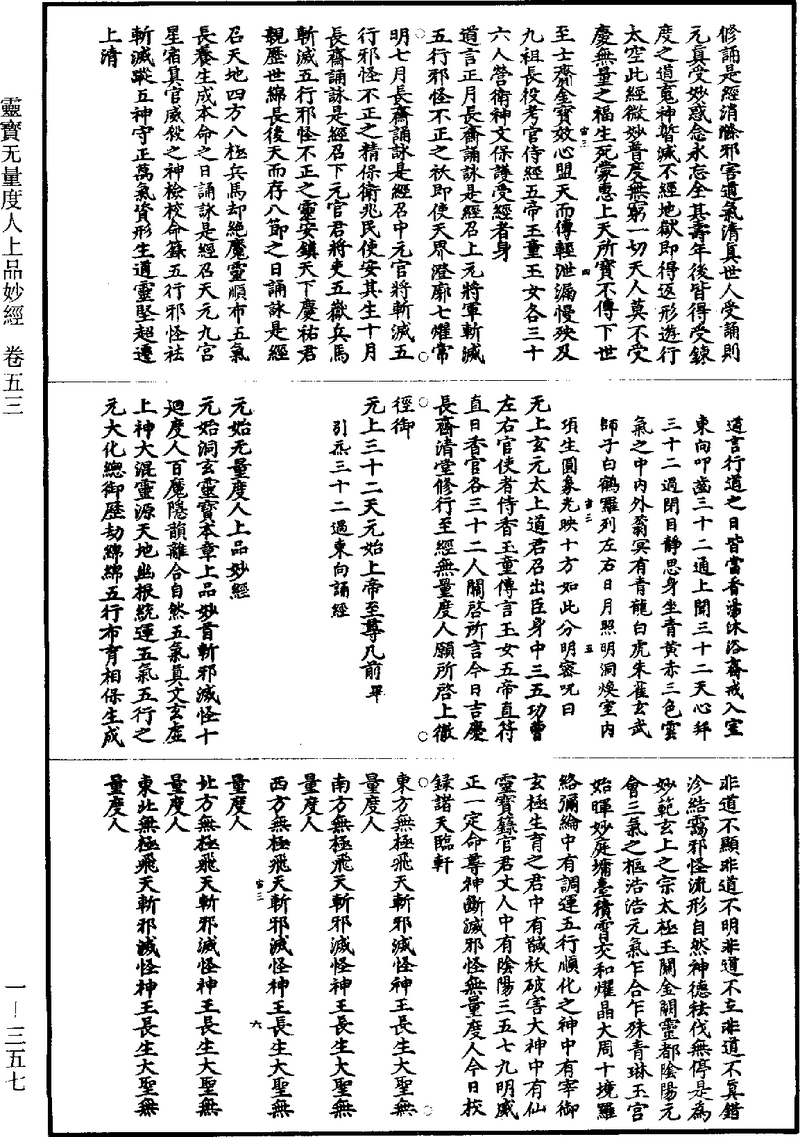 靈寶无量度人上品妙經 卷五三
一—三五七
修誦是經消滌邪害道氣清真世人受誦則
元真受妙惑念永忘全其壽年後皆得受鍊
度之道鬼神暫滅不經地獄即得返形遊行
太空此經微妙普度無窮一切天人莫不受
慶無量之福生死蒙惠上天所寶不傳下世
至士齋金寶效心盟天而傳輕泄漏慢殃及
九祖長役考官侍經五帝玉童玉女各三十
六人營衛神文保護受經者身
道言正月長齋誦詠是經召上元將軍斬滅
五行邪怪不正之祅即使天界澄廓七耀常
明七月長齋誦詠是經召中元官將斬滅五
行邪怪不正之精保衛兆民使安其生十月
長齋誦詠是經召下元官君將吏五嶽兵馬
斬滅五行邪怪不正之靈安鎮天下慶祐君
親歷世綿長後天而存八節之日誦詠是經
召天地四方八極兵馬却絶魔靈順布五氣
長養生成本命之日誦詠是經召天元九宮
星宿真官威殺之神檢校命籙五行邪怪祛
斬滅蹤五神守正萬氣資形生道靈堅超遷
上清
道言行道之日皆當香湯沐浴齋戒入室
東向叩齒三十二通上聞三十二天心拜
三十二過閉目靜思身坐青黄赤三色雲
氣之中内外蓊冥有青龍白虎朱雀玄武
師子白鶴羅列左右日月照明洞煥室内
項生圓象光映十方如此分明密呪曰
无上玄元太上道君召出臣身中三五功曹
左右官使者侍香玉童傳言玉女五帝直符
直日香官各三十二人關啓所言今日吉慶
長齋清堂修行至經無量度人願所啓上徹
徑御
元上三十二天元始上帝至尊几前畢
引炁三十二過東向誦經
元始无量度人上品妙經
元始洞玄靈寶本章上品妙首斬邪滅怪十
迴度人百魔隱韻離合自然五氣真文玄虚
上神大混靈源天地幽根統運五氣五行之
元大化總御歷劫綿綿五行布育相保生成
非道不顯非道不明非道不立非道不真錯
沴結靄邪怪流形自然神德祛伐無停是為
妙範玄上之宗太極玉關金闕靈都陰陽元
會三氣之樞浩浩元氣乍合乍殊青琳玉宮
始暉妙庭墉臺積霄交和燿晶大周十境羅
絡彌綸中有調運五行順化之神中有宰御
玄極生育之君中有馘祅破害大神中有仙
靈寶籙官君丈人中有陰陽三五七九明威
正一定命尊神斷滅邪怪無量度人今日校
録諸天臨軒
東方無極飛天斬邪滅怪神王長生大聖無
量度人
南方無極飛天斬邪滅怪神王長生大聖無
量度人
西方無極飛天斬邪滅怪神王長生大聖無
量度人
北方無極飛天斬邪滅怪神王長生大聖無
量度人
東北無極飛天斬邪滅怪神王長生大聖無
量度人